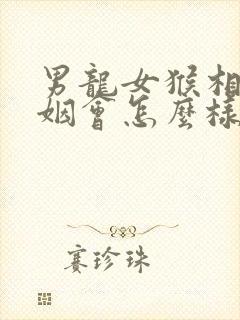 男龍女猴相
姻會怎麼樣
賽珍珠